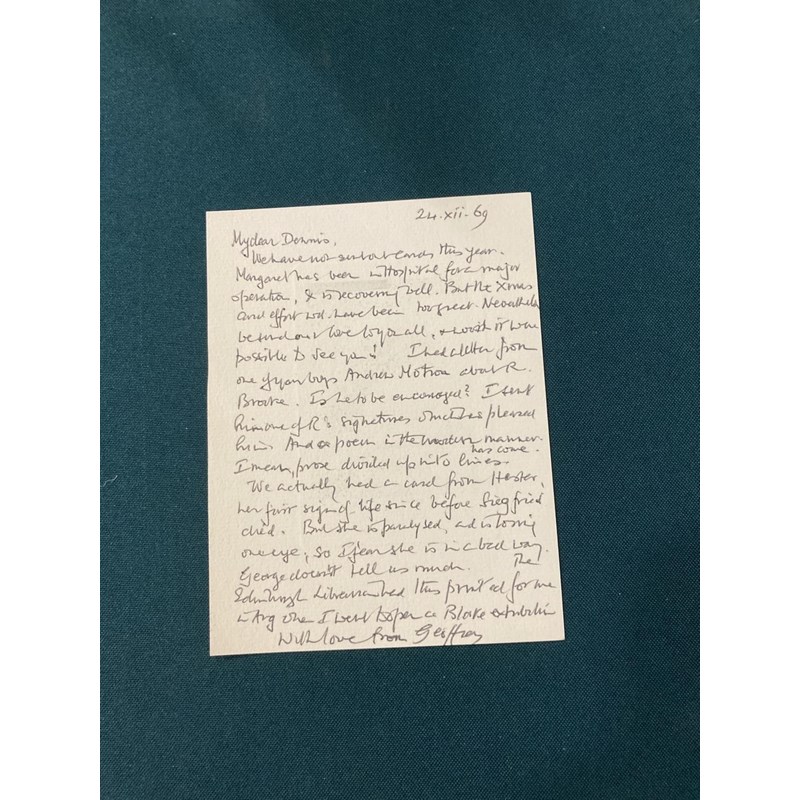 24.xii.69
My dear Dennis,
We have not sent out cards this year.
Margaret has been in Hospital for a major
operation, & is recovering well. But the Xmas
card effort wd. have been too great. Nevertheless
we send our love to you all, & wish it were
possible to see you! I had a letter from
one of your boys Andrew Motion about R.
Brooke. Is he to be encouraged? I sent
him one of R's signatures which has pleased
him. And a poem in the modern manner.
I mean, prose divided up into lines. has come.
We actually had a card from Hester,
her first sign of life since before Siegfried
died. But she is paralysed, and is losing
one eye, so I fear she is in a bad way.
George doesn't tell us much. The
Edinburgh Librarian had this printed for me
in Aug when I went to open a Blake exhibition
With love from Geoffrey